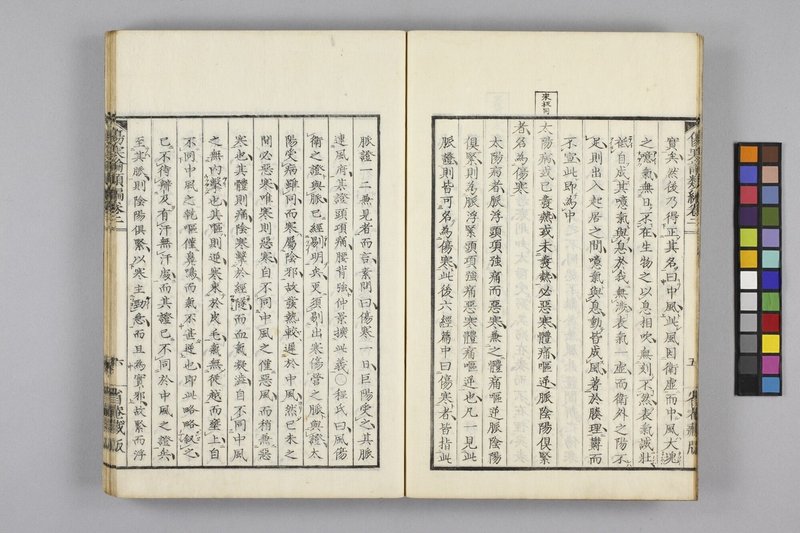 實矣然後乃得正其名曰中風此風因衛虛而中風大塊
之噫氣無日不在生物之以息相吹無刻不然表氣誠壯
祗自成其噫氣與息於我無涉表氣一虛而衛外之陽不
足則出入起居之間噫氣與息動皆成風著於腠理鬱而
不宣此即為中
太陽病或已發熱或未發熱必惡寒體痛嘔逆脈陰陽俱緊
者名為傷寒
太陽病者脈浮頭項強痛而惡寒兼之體痛嘔逆脈陰陽
俱緊則為脈浮緊頭項強痛惡寒體痛嘔逆也凡一見此
脈證則皆可名為傷寒此後六經篇中曰傷寒者皆指此
脈證一二兼見者而言素問曰傷寒一日巨陽受之其脈
連風府其證頭項痛腰背強仲景擴此義〇程氏曰風傷
衛之證與脈已經剔明矣更須剔出寒傷營之脈與證太
陽受病雖同而寒屬陰邪故發熱較遲於中風然已未之
間必惡寒唯寒則惡寒自不同中風之僅惡風而稍兼惡
寒也其體則痛陰寒擊於經隧而血氣凝澁自不同中風
之無內擊也其嘔則逆寒來於皮毛氣無從越而壅上自
不同中風之乾嘔僅鼻鳴而氣不甚逆也即此略略叙之
已不待辨及有汗無汗處而其證已不同於中風之證矣
至其脈則陰陽俱緊以寒主勁急而且為實邪故緊而浮
傷寒論類編卷二
六
傷寒論類編卷二
五